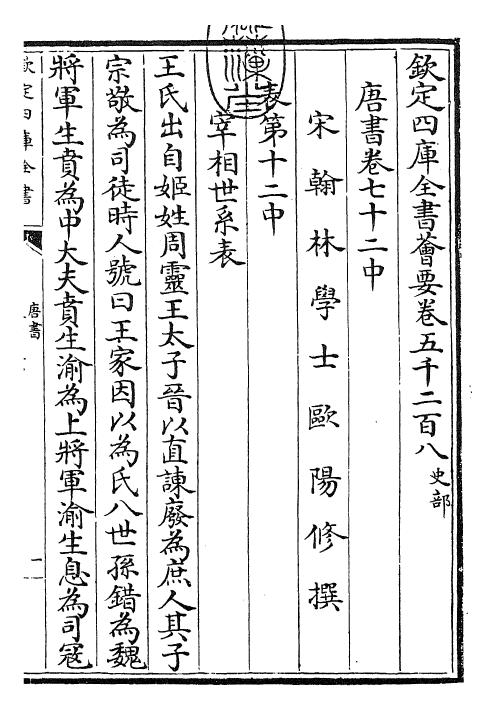 欽定四庫全書薈要卷五千二百八 史部
唐書卷七十二中
宋翰林學士歐陽修撰
表第十二中
宰相世系表
王氏出自姬姓周靈王太子晉以直諫廢為庶人其子
宗敬為司徒時人號曰王家因以為氏八世孫錯為魏
將軍生賁為中大夫賁生渝為上將軍渝生息為司冦
欽定四庫全書
唐書
一